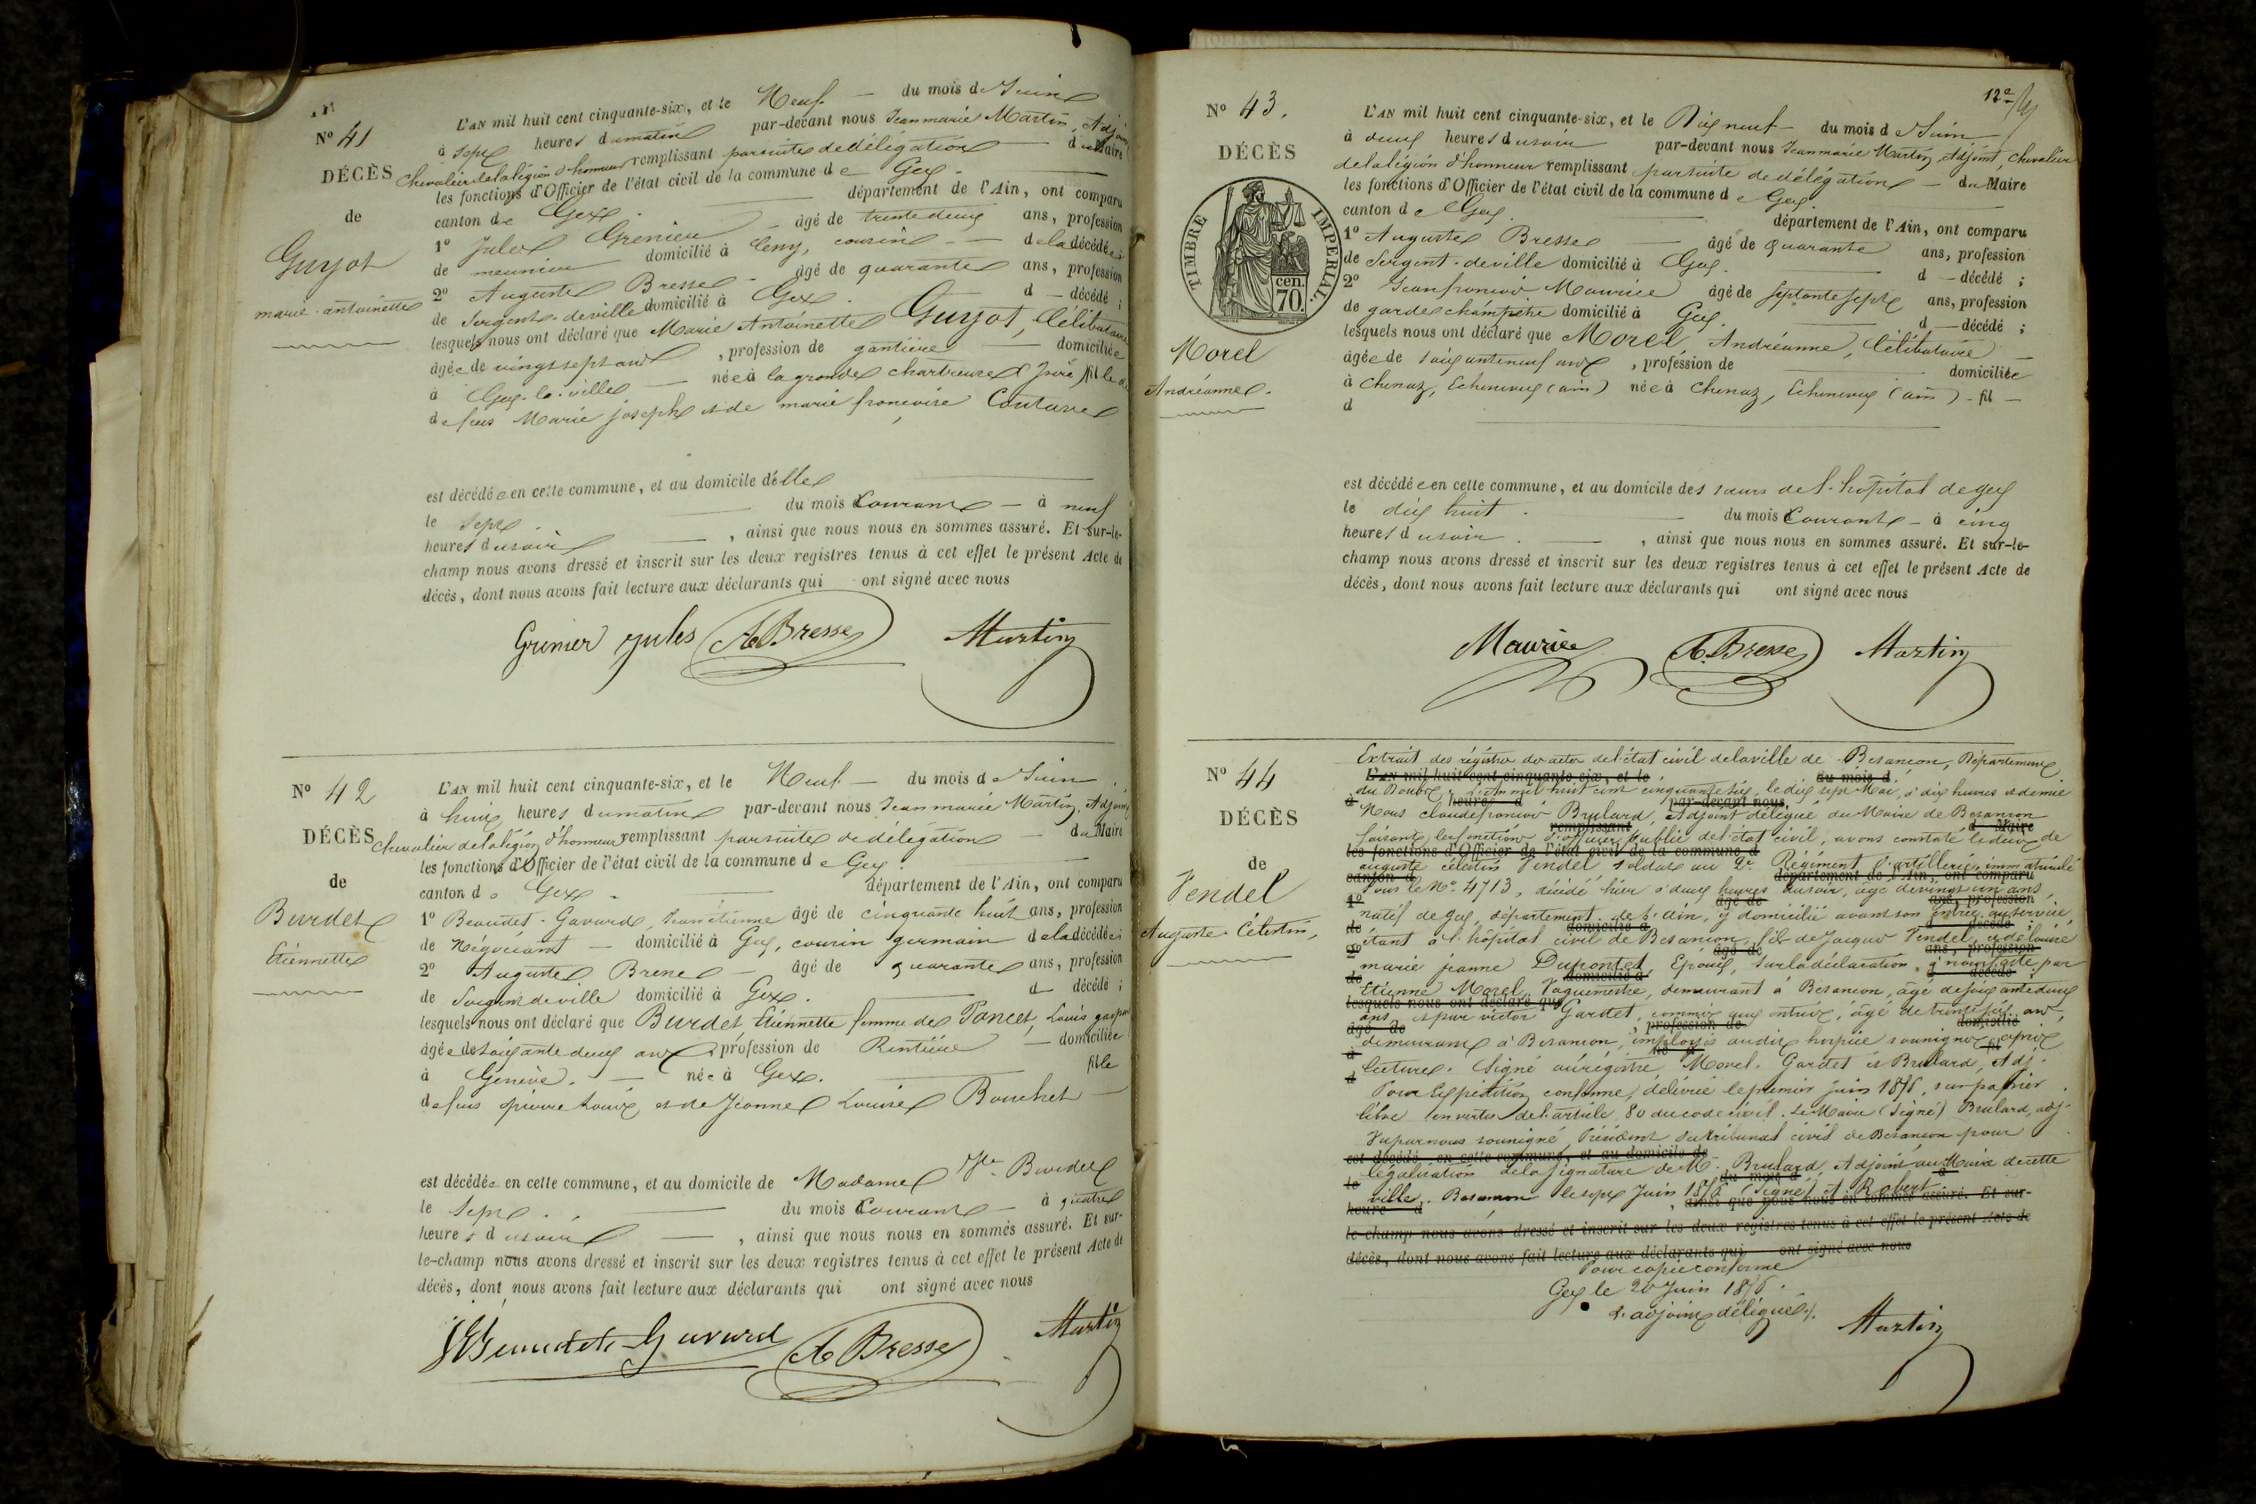 N° 41
DÉCÈS
de
Guyot
marie antoinette
L'AN mil huit cent cinquante-six, et le Neuf — du mois de Juin
à sept heures du matin par-devant nous Jean marie Martin, Adjoint
Chevalier de la légion d'honneur remplissant par suite de délégation — du Maire
les fonctions d'Officier de l'état civil de la commune de Gex.
canton de Gex. département de l'Ain, ont comparu
1° Jules Grenier âgé de trente deux ans, profession
de meunier domicilié à Cessy, cousin — de la décédée;
2° Auguste Bresse âgé de quarante ans, profession
de Sergent de ville domicilié à Gex. d — décédé ;
lesquels nous ont déclaré que Marie Antoinette Guyot, Célibataire
âgée de vingt sept ans, profession de gantière — domiciliée
à Gex la ville — née à la grande chartreuse (Jura) fille de
defeus Marie joseph et de marie françoise
est décédée en cette commune, et au domicile d'elle
le Sept. du mois Courant — à neuf
heures du soir — , ainsi que nous nous en sommes assuré. Et sur-le-
champ nous avons dressé et inscrit sur les deux registres tenus à cet effet le présent Acte de
décès, dont nous avons fait lecture aux déclarants qui ont signé avec nous
Grenier jules A Bresse Martin
N° 42
DÉCÈS
de
Burdet
Etiennette
L'AN mil huit cent cinquante-six, et le Neuf — du mois de Juin
à huit heures du matin par-devant nous Jean marie Martin, Adjoint
Chevalier de la légion d'honneur remplissant par suite de délégation — du Maire
les fonctions d'Officier de l'état civil de la commune de Gex.
canton de Gex. département de l'Ain, ont comparu
1° Beaudet-Gavard, Jean étienne âgé de cinquante huit ans, profession
de Négociant — domicilié à Gex, cousin germain de la décédée;
2° Auguste Bresse — âgé de quarante ans, profession
de Sergent de ville domicilié à Gex. d — décédé ;
lesquels nous ont déclaré que Burdet Etiennette femme de Poncet, Louis gaspard
âgée de soixante deux ans, profession de Rentière — domiciliée
à Genève. — née à Gex. fille
de feus pierre Louis et de Jeanne Louise Bouchet —
est décédée en cette commune, et au domicile de Madame Vve Burdet
le Sept. du mois Courant — à quatre
heures du soir — , ainsi que nous nous en sommes assuré. Et sur-
le-champ nous avons dressé et inscrit sur les deux registres tenus à cet effet le présent Acte de
décès, dont nous avons fait lecture aux déclarants qui ont signé avec nous
Beaudet-Gavard A Bresse Martin
12e
N° 43.
DÉCÈS
TIMBRE IMPERIAL.
cen.
70.
Morel
Andréanne.
L'AN mil huit cent cinquante-six, et le Dix neuf — du mois de Juin
à deux heures du soir par-devant nous Jean marie Martin, Adjoint Chevalier
de la légion d'honneur remplissant par suite de délégation — du Maire
les fonctions d'Officier de l'état civil de la commune de Gex.
canton de Gex. département de l'Ain, ont comparu
1° Auguste Bresse — âgé de quarante ans, profession
de Sergent de ville domicilié à Gex. d — décédé ;
2° Jean françois Maurice âgé de septante sept ans, profession
de garde champêtre domicilié à Gex. d — décédé ;
lesquels nous ont déclaré que Morel Andréanne, Célibataire —
âgée de soixante neuf ans, profession de domiciliée
à Chenaz, Echenevex (ain) née à Chenaz, Echenevex (ain) - fil —
d
est décédée en cette commune, et au domicile des sœurs de l'hôpital de gex
le dix huit. du mois Courant — à cinq
heures du soir. — , ainsi que nous nous en sommes assuré. Et sur-le-
champ nous avons dressé et inscrit sur les deux registres tenus à cet effet le présent Acte de
décès, dont nous avons fait lecture aux déclarants qui ont signé avec nous
Maurice A. Bresse Martin
N° 44
DÉCÈS
de
Vendel
Auguste Célestin,
Extrait des régistres des actes de l'état civil de la ville de Besançon, Département
L'AN mil huit cent cinquante-six, et le du mois d
du Doubs. L'an mil huit cent cinquante six, le dix sept Mai, à dix heures et demie
à heures d par-devant nous
Nous claude françois Brulard, Adjoint délégué du Maire de Besançon
remplissant d Maire
faisant les fonctions d'officier public de l'état civil, avons constaté le décès de
les fonctions d'Officier de l'état civil de la commune d
auguste célestin Vendel soldat au 2e Régiment d'artillerie, immatriculé
canton d département de l'Ain, ont comparu
sous le N° 4713, décédé hier à deux heures du soir, âgé de vingt un ans,
1° âgé de ans, profession
natif de Gex, département de l'Ain, y domicilié avant son entrée au service,
de domicilié à d décédé
étant à l'hôpital civil de Besançon, fils de Jacques Vendel et de Louise
2° âgé de ans, profession
marie jeanne Dupontet, Epoux, sur la déclaration à nous faite par
de domicilié à d décédé
Etienne Morel, Vaguemestre, demeurant à Besançon, âgé de soixante deux
lesquels nous ont déclaré que
ans et par victor Gardet, commis aux entrées, âgé de trente six ans,
âgé de profession de domicilié
demeurant à Besançon, employés audit hospice soussignés après
à né à fil
lecture. Signé au régistre Morel. Gardet et Brulard, Adj.
d
Pour Expédition conforme, délivrée le premier Juin 1856, sur papier
libre en vertu de l'article 80 du code civil. Le Maire (Signé) Brulard, adj.
Vu par nous soussigné, Président du tribunal civil de Besançon pour
est décédé en cette commune, et au domicile de
légalisation de la signature de M. Brulard, Adjoint au Maire de cette
le du mois d à
ville. Besançon le sept Juin 1856 (Signé) A Robert
heure d , ainsi que nous nous en sommes assuré. Et sur-
le-champ nous avons dressé et inscrit sur les deux registres tenus à cet effet le présent Acte de
décès, dont nous avons fait lecture aux déclarants qui ont signé avec nous
Pour copie conforme
Gex le 20 Juin 1856.
L'adjoint délégué.
Martin